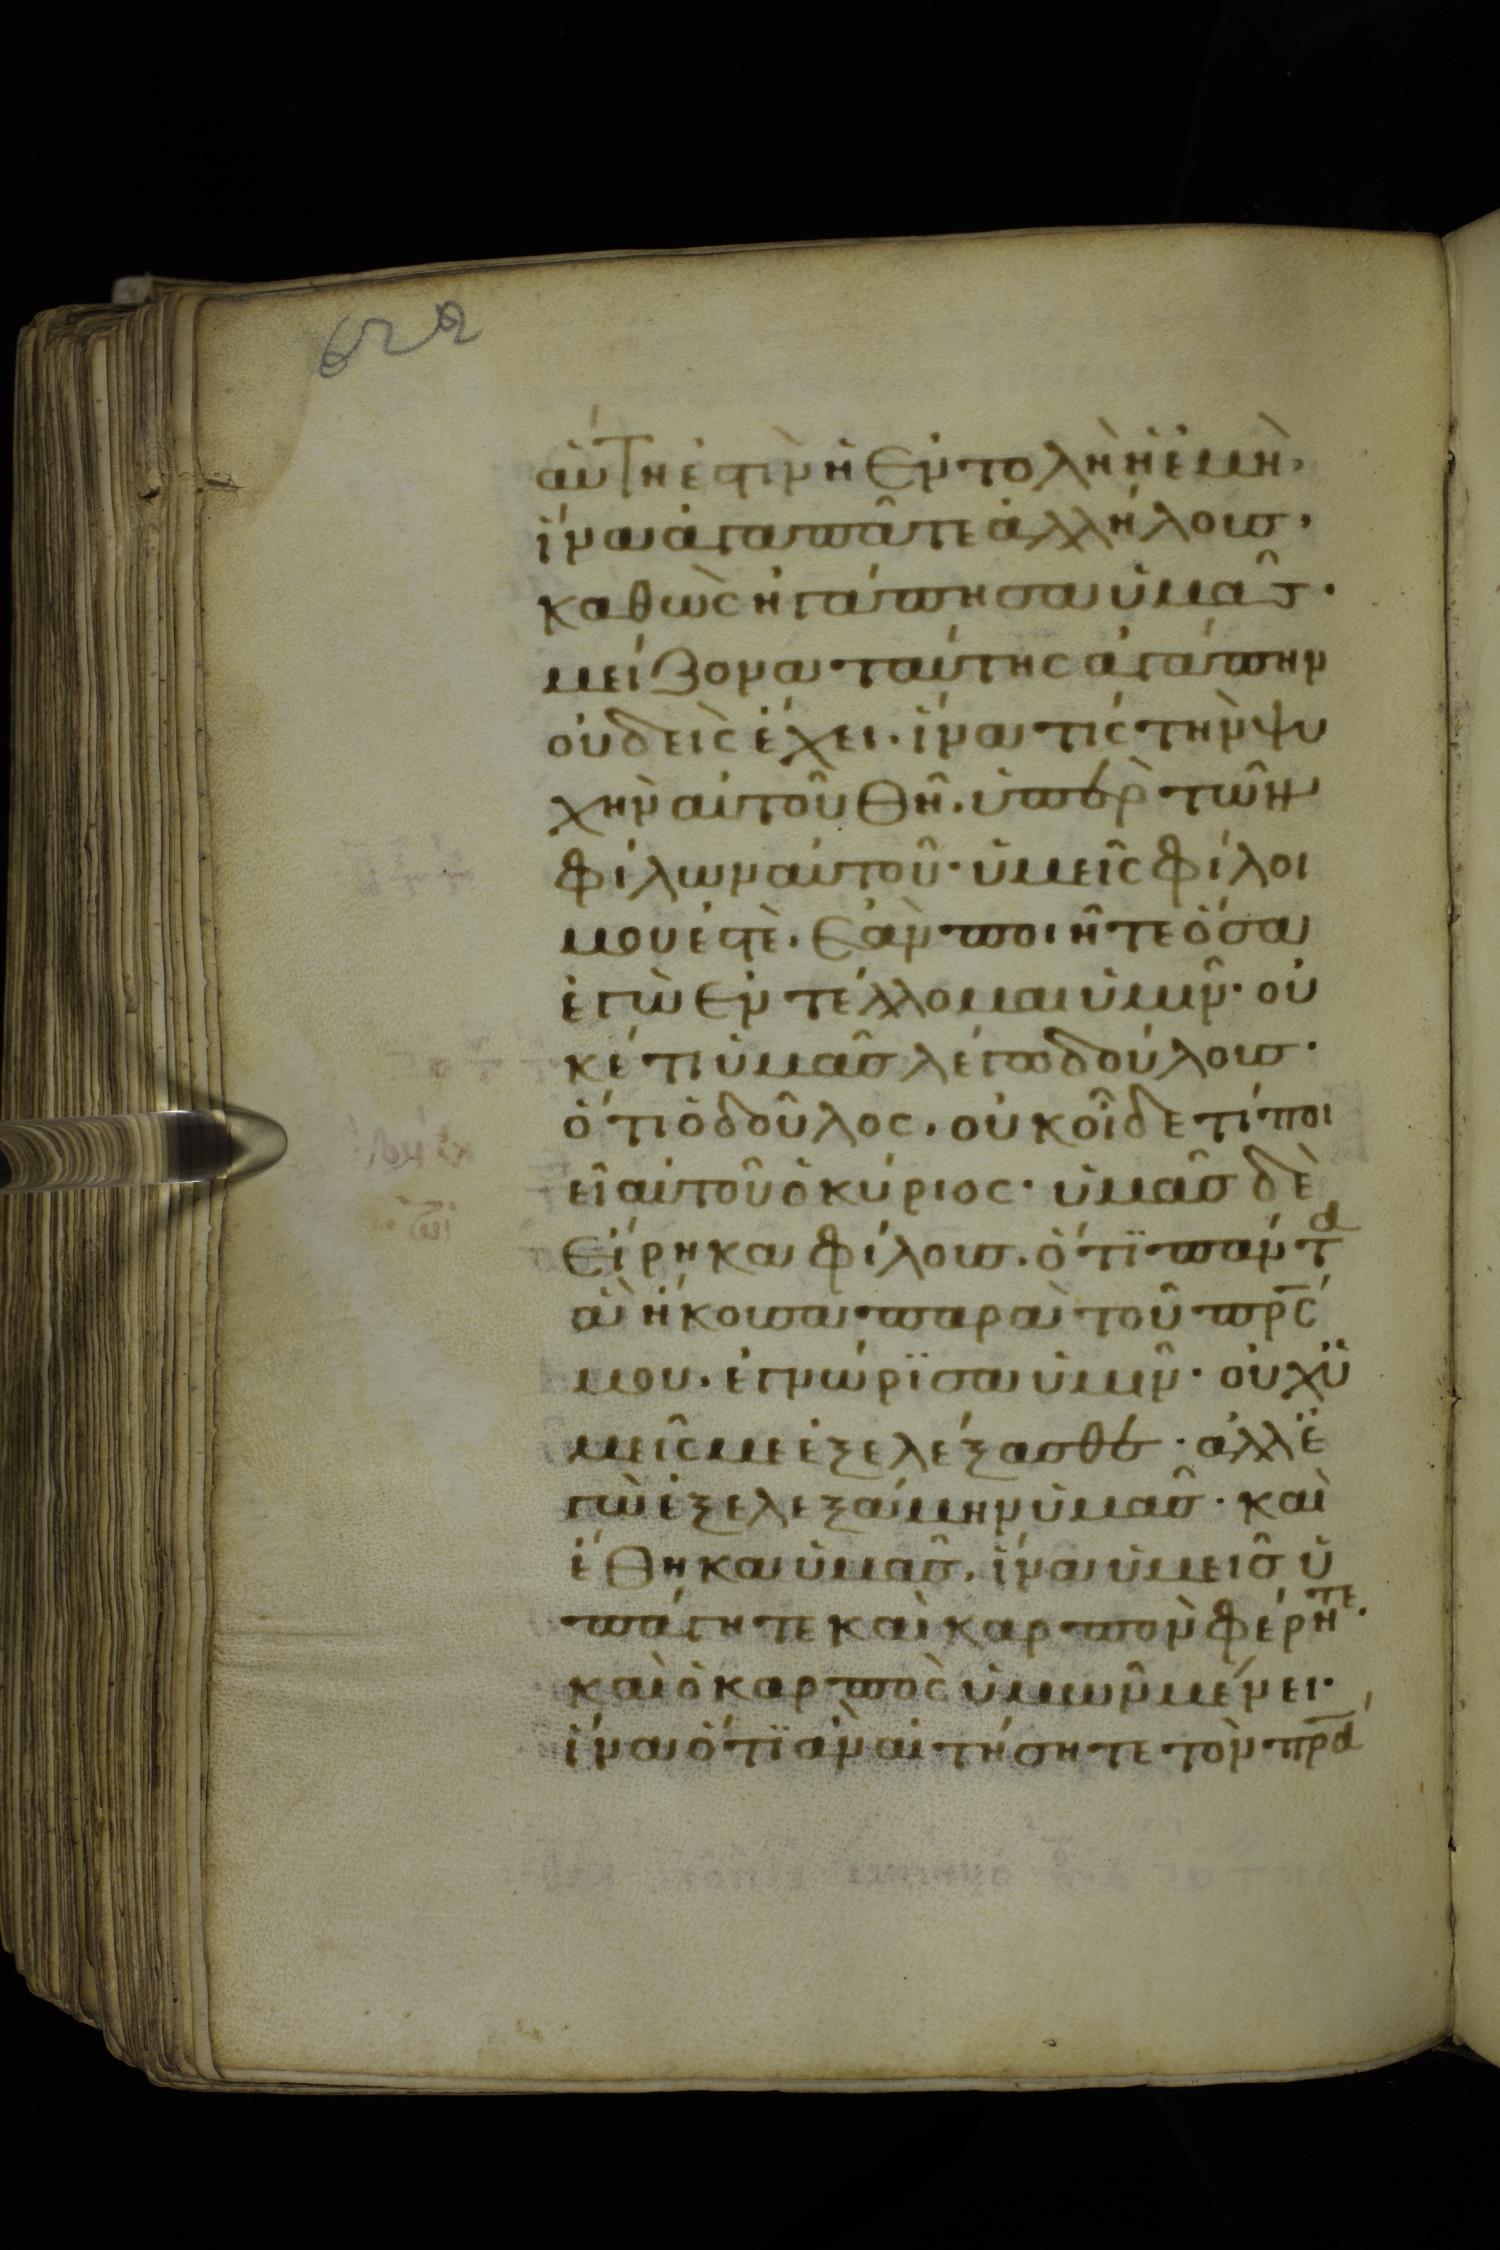 αὕτη ἐστὶν ἡ ἐντολὴ ἡ ἐμὴ,
ἵνα ἀγαπᾶτε ἀλλήλους,
καθὼς ἠγάπησα ὑμᾶς·
μείζονα ταύτης ἀγάπην
οὐδεὶς ἔχει. ἵνα τίς τὴν ψυ
χὴν αὐτοῦ θῆ. ὑπὲρ τῶν
φίλων αὐτοῦ· ὑμεῖς φίλοι
μου ἐστὲ. ἐὰν ποιῆτε ὅσα
ἐγὼ ἐντέλλομαι ὑμῖν· οὐ
κέτι ὑμᾶς λέγω δούλους·
ὅτι ὁ δοῦλος, οὐκ οἶδε τί ποι
εῖ αὐτοῦ ὁ κύριος· ὑμᾶς δὲ
εἴρηκα φίλους. ὅτϊ πάντα
ἃ ἤκουσα παρὰ τοῦ πρ̅ς
μου. ἐγνώρϊσα ὑμῖν· οὐχ ὑ
μεῖς με ἐξελέξασθε· ἀλλ ἐ
γὼ ἐξελεξάμην ὑμᾶς· καὶ
ἔθηκα ὑμᾶς. ἵνα ὑμεῖς ὑ
πάγητε καὶ καρπὸν φέρητε·
καὶ ὁ καρπὸς ὑμῶν μένει·
ἵνα ὅτϊ ἂν αἰτήσητε τὸν πρ̅α